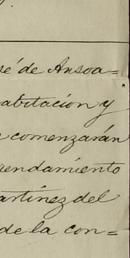 sé de Ansoa=
abitación y
comenzarán
rendamiento
artínez del
de la con=